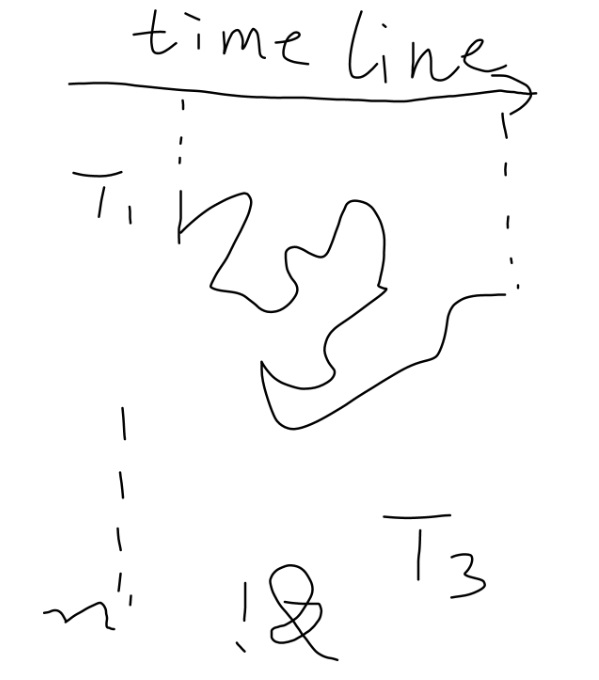 time line
T1
T3
n' !&